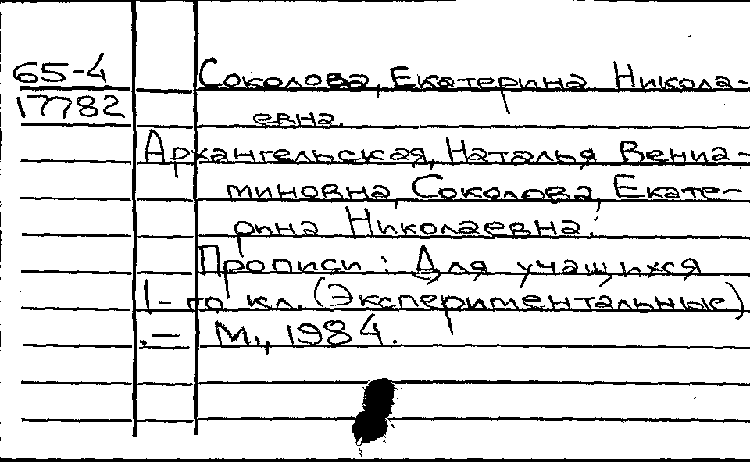 65-4 Соколова, Екатерина Никола-
17782 евна.
Архангельская, Наталья Вениа-
миновна, Соколова, Екате-
рина Николаевна:
Прописи: Для учащихся
1-го кл. (Экспериментальные)
.— М., 1984.